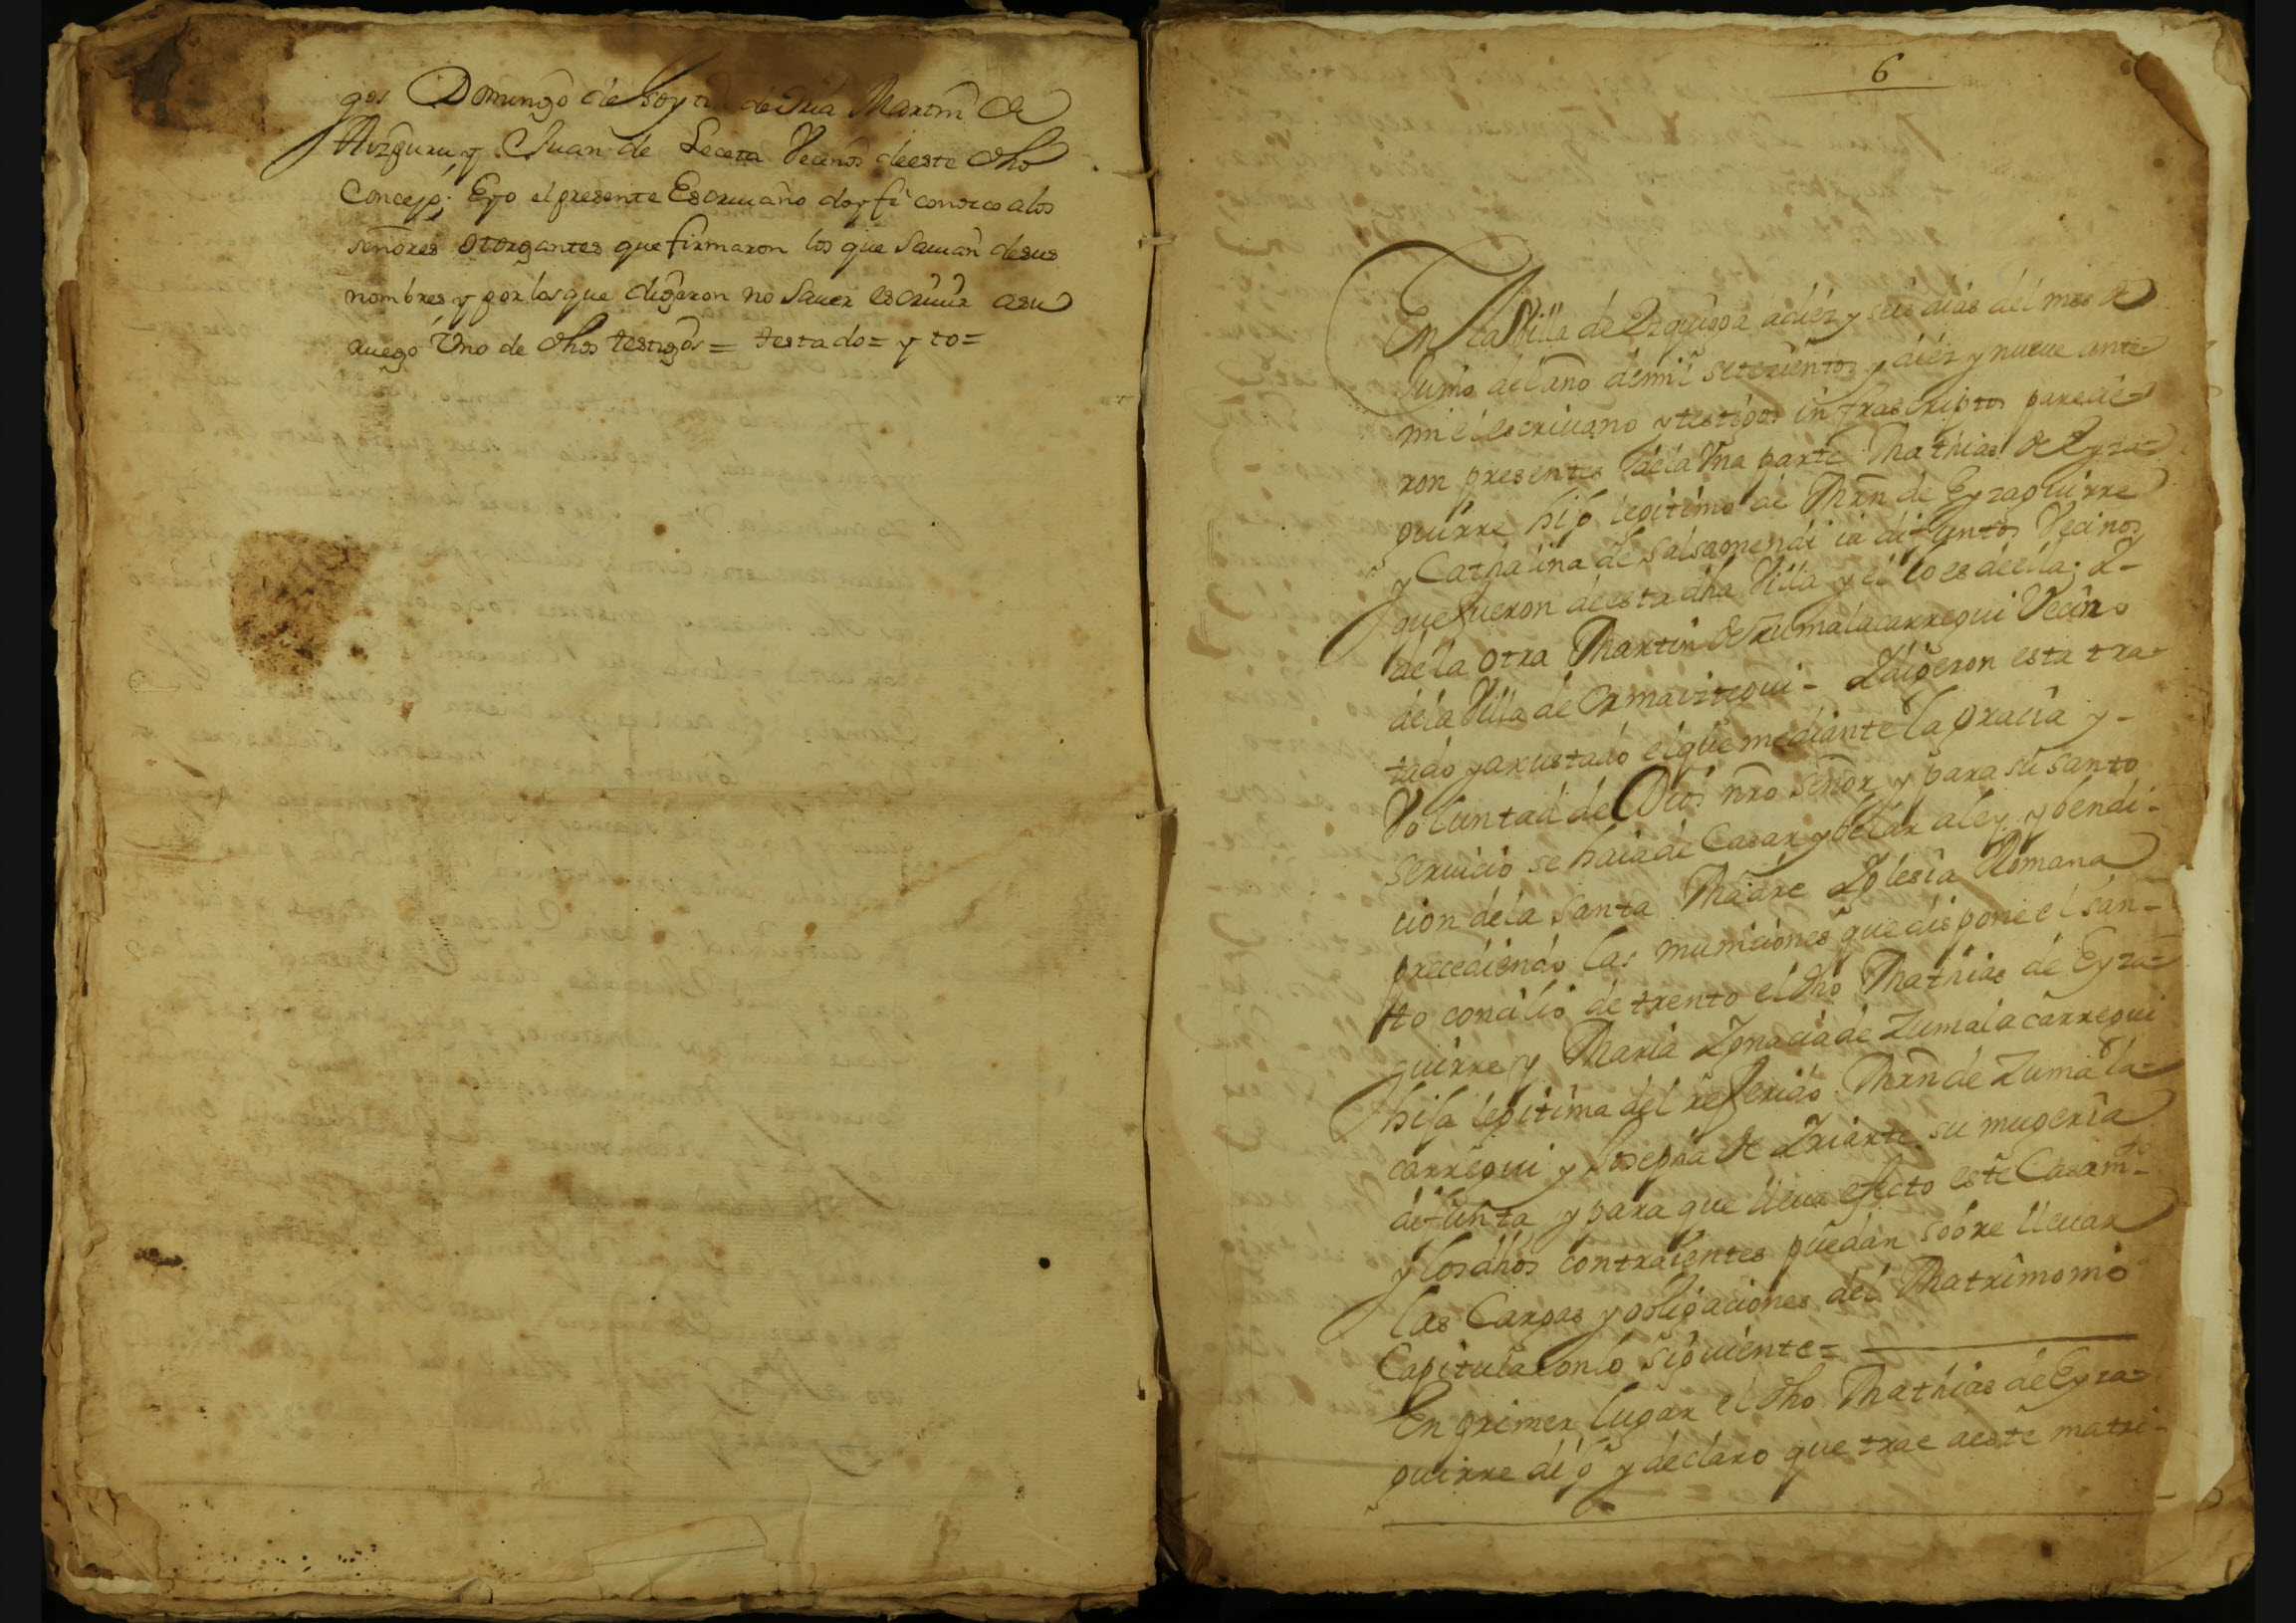 gos Domingo de de Iria Martin de
Aizguru, y Juan de Leceta Vecinos deeste dho
Concejo; Eyo el presente Escriuano doy fe conozco alos
señores otorgantes que firmaron los que sauian desus
nombres y por los que digeron no sauer escriuir asu
ruego Uno de dhos testigos = testado = y to =
6
En la Villa de Ezquioga adiez y seis dias del mes de
Junio del año demil setezientos y diez y nueue ante
mi el escriuano y testigos infrascriptos parecie-
ron presentes dela Una parte Mathias de Eyza-
guirre hijo legitimo de Mrn de Eyzaguirre
y Cathalina de Salsamendi ia difuntos Vecinos
que fueron deesta dha Villa y el lo es deella; I-
dela otra Martin de Zumalacarregui Vecino
dela Villa de Ormaiztegui - Idigeron esta tra-
tado yaxustado el que mediante la gracia y-
Voluntad de Dios nro señor y para su santo
seruicio se haia de Casar y belar aley y bendi-
cion dela santa Madre Iglesia Romana
precediendo las municiones que dispone el san-
to concilio de trento el dho Mathias de Eyza-
guirre y Maria Ignacia de Zumalacarregui
hija legitima del referido Mrn de Zumala-
carregui y Josepha de Iriarte su muger ia
difunta y para que lleue efecto este Casamto-
y los dhos contraientes puedan sobre lleuar
las Cargas y obligaciones del Matrimonio
Capitularon lo siguiente =
En primer lugar el dho Mathias de Eyza-
guirre dijo y declaro que trae aeste matri-